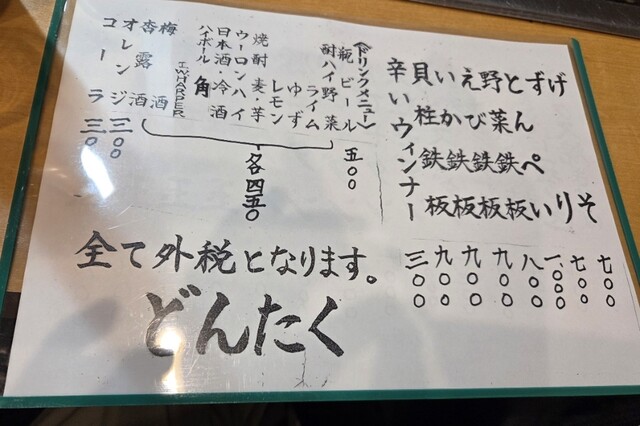 げそ 七〇〇
ずり 七〇〇
とんぺい 一、〇〇〇
野菜鉄板 八〇〇
えび鉄板 九〇〇
いか鉄板 九〇〇
貝柱鉄板 九〇〇
辛いウィンナー 三〇〇
〈ドリンクメニュー〉
瓶ビール 五〇〇
酎ハイ 野菜
ライム
ゆず
レモン
焼酎 麦・芋
ウーロンハイ
日本酒・冷酒
ハイボール 角
I.W.HARPER
梅酒
杏露酒
各四五〇
オレンジ 三〇〇
コーラ 三〇〇
全て外税となります。
どんたく